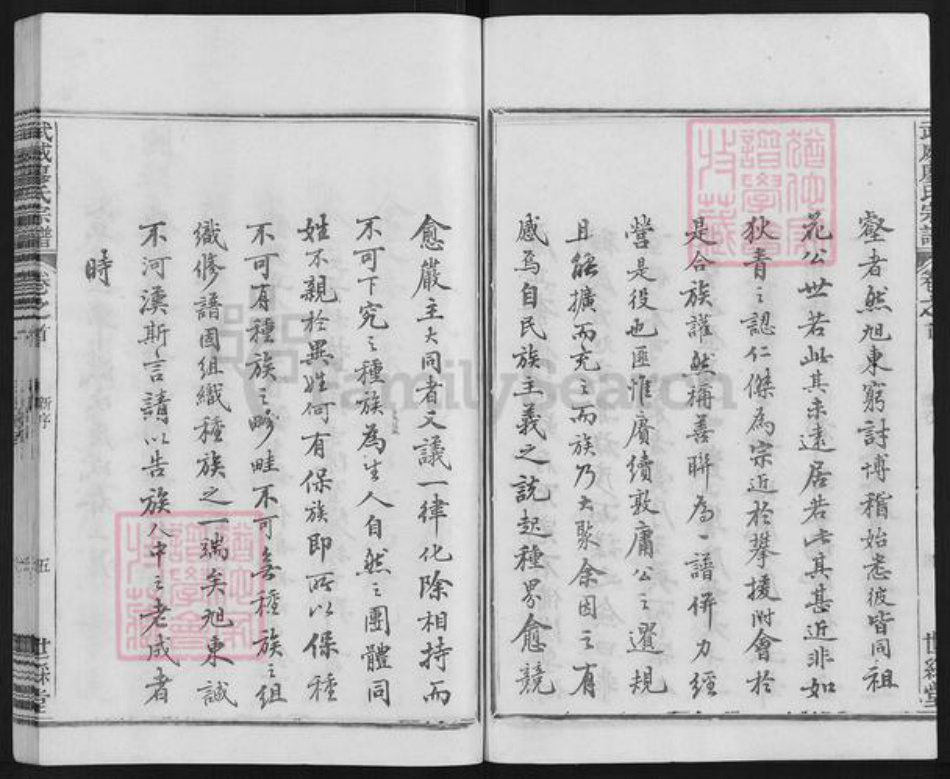 壑者然旭東窮討博稽始悉彼皆同祖
花公世若此其未遠居若此其甚近非如
狄青之認仁傑為宗近於攀援附會於
是合族讙然稱善聯為一譜併力經
營是役也匪惟賡續敦庸公之遺規
且能擴而充之而族乃大聚余因之有
感焉自民族主義之説起種界愈競
愈嚴主大同者又議一律化除相持而
不可下究之種族為生人自然之團體同
姓不親於異姓何有保族即所以保種
不可有種族之畛畦不可無種族之組
織修譜固組織種族之一端矣旭東誠
不河漢斯言請以告族人中之老成者
時
武威廖氏宗譜
卷之首
新序
五
世綵堂
武威廖氏宗譜
卷之首
世綵堂
FamilySearch